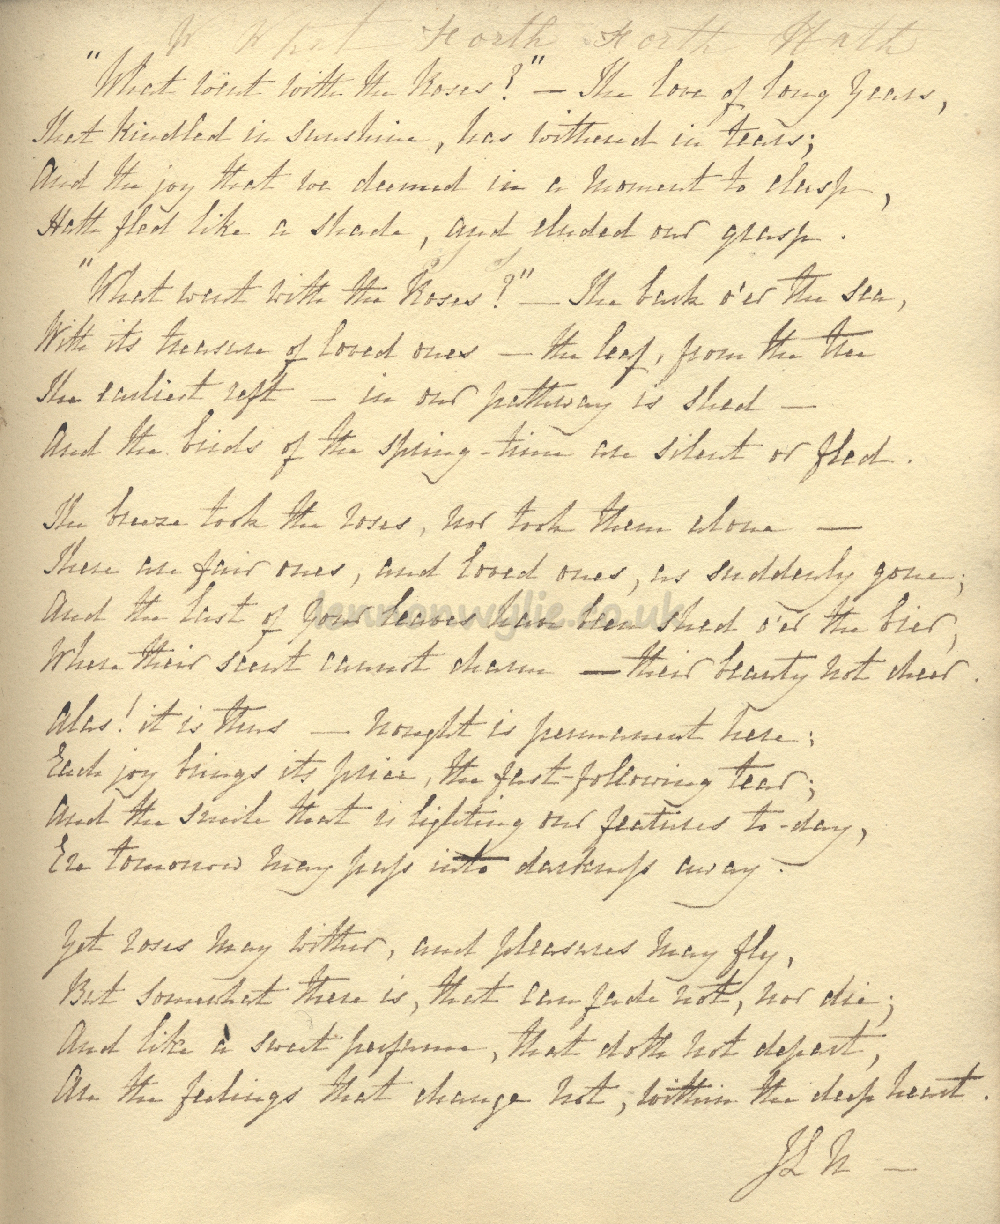 W What Forth Forth Hath
"What went with the Roses?" — The love of long years,
That kindled in sunshine, has withered in tears;
And the joy that we deemed in a moment to clasp,
Hath fled like a shade, and eluded our grasp.
"What went with the Roses?" — The bark o'er the sea,
With its treasure of loved ones — the leaf, from the tree
The earliest reft — in our pathway is shed —
And the birds of the spring-time are silent or fled.
The breeze took the roses, nor took them alone —
There are fair ones, and loved ones, as suddenly gone;
And the last of your leaves have been shed o'er the bier,
Where their scent cannot charm — their beauty not cheer.
Alas! it is thus — nought is permanent here;
Each joy brings its price, the fast-following tear;
And the smile that is lighting our features to-day,
Ere tomorrow may pass into darkness away.
Yet roses may wither, and pleasures may fly,
But somewhat there is, that can fade not, nor die;
And like a sweet perfume, that doth not depart,
Are the feelings that change not, within the deep heart.
JLN —
lennonwylie.co.uk